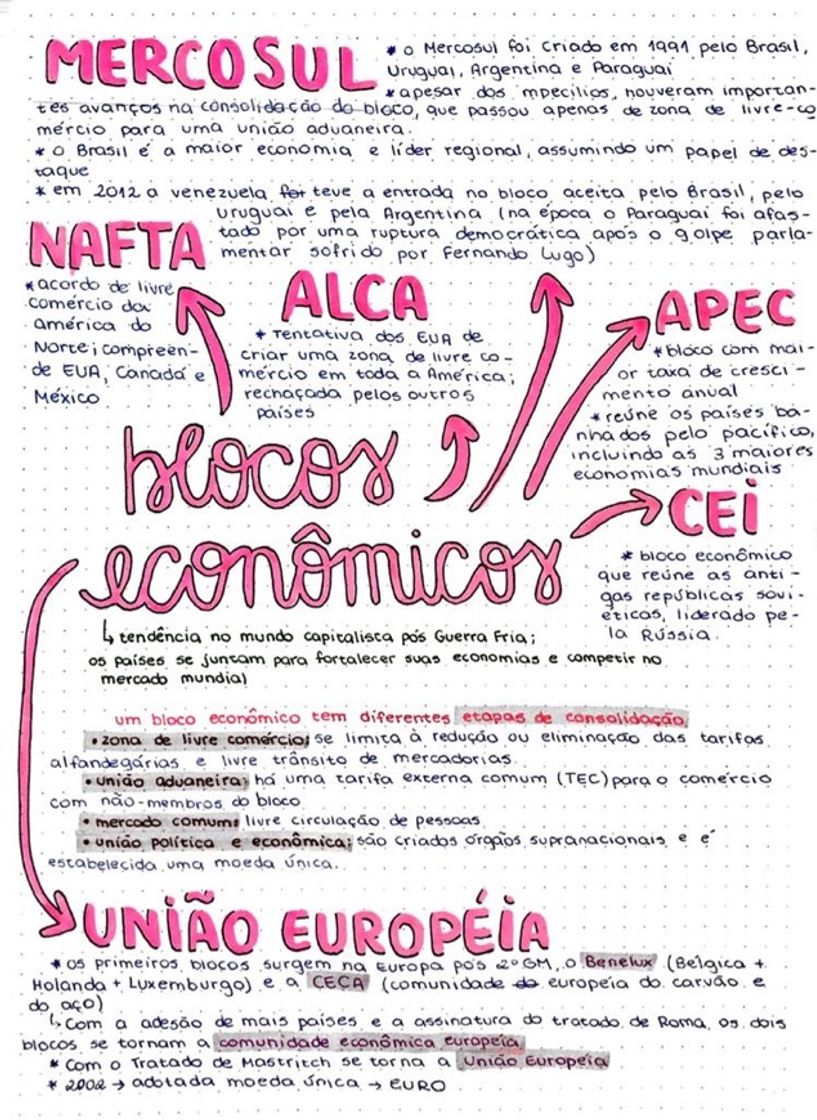 MERCOSUL
* o Mercosul foi criado em 1991 pelo Brasil,
Uruguai, Argentina e Paraguai
* apesar dos mpecílios, houveram importan-
tes avanços na consolidação do bloco, que passou apenas de zona de livre-co
mércio para uma união aduaneira.
* o Brasil é a maior economia e líder regional, assumindo um papel de des-
taque
* em 2012 a venezuela teve a entrada no bloco aceita pelo Brasil, pelo
uruguai e pela Argentina (na época o Paraguai foi afas-
tado por uma ruptura democrática após o golpe parla-
mentar sofrido por Fernando Lugo)
NAFTA
* acordo de livre
comércio da
américa do
Norte; compreen-
de EUA, Canadá e
México
ALCA
* Tentativa dos EUA de
criar uma zona de livre co-
mércio em toda a América;
rechaçada pelos outros
países
APEC
* bloco com mai-
or taxa de cresci-
mento anual
* reúne os países ba-
nhados pelo pacífico,
incluindo as 3 maiores
economias mundiais
blocos
econômicos
CEI
* bloco econômico
que reúne as anti-
gas repúblicas sovi-
éticas, liderado pe-
la Rússia.
↳ tendência no mundo capitalista pós Guerra Fria;
os países se juntam para fortalecer suas economias e competir no
mercado mundial
um bloco econômico tem diferentes etapas de consolidação
• zona de livre comércio; se limita à redução ou eliminação das tarifas
alfandegárias e livre trânsito de mercadorias.
• união aduaneira; há uma tarifa externa comum (TEC) para o comércio
com não-membros do bloco
• mercado comum; livre circulação de pessoas
• união política e econômica; são criados órgãos supranacionais e é
estabelecida uma moeda única.
UNIÃO EUROPÉIA
* os primeiros blocos surgem na Europa pós 2ª GM, o Benelux (Bélgica +
Holanda + Luxemburgo) e a CECA (comunidade do europeia do carvão e
do aço)
↳ Com a adesão de mais países e a assinatura do tratado de Roma, os dois
blocos se tornam a comunidade econômica europeia
* Com o Tratado de Mastritch se torna a União Europeia
* 2002 → adotada moeda única → EURO